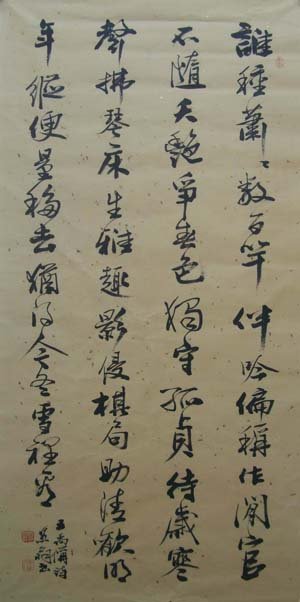 誰種蕭〻數百竿伴吟偏稱作閑官
不隨夭艷爭春色獨守孤貞待歲寒
聲拂琴床生雅趣影侵棋局助清歡明
年縱便量移去猶得今冬雪裡看
王禹偁詩
書